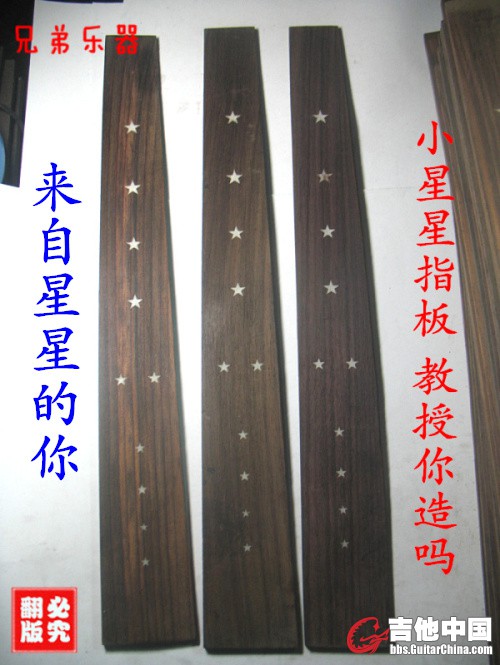 兄弟乐器
来自星星的你
小星星指板 教授你造吗
翻版必究
吉他中国
bbs.GuitarChina.com